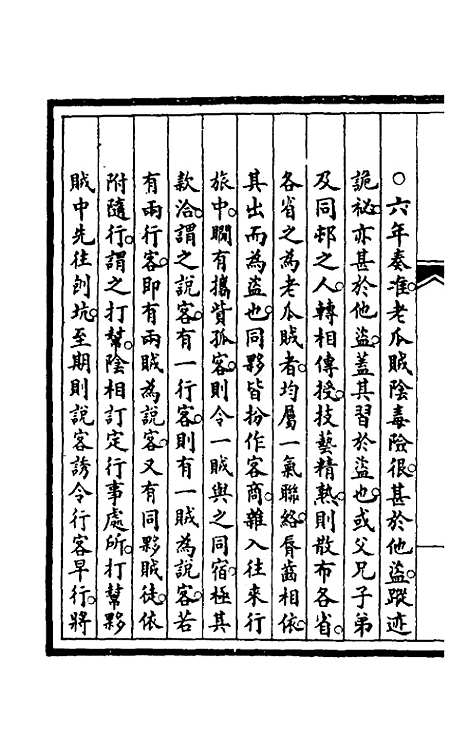 ○六年奏准。老瓜賊陰毒險很。甚於他盜。蹤迹
詭祕。亦甚於他盜。蓋其習於盜也。或父兄子弟
及同邨之人。轉相傳授。技藝精熟。則散布各省。
各省之為老瓜賊者。均屬一氣聯絡。脣齒相依。
其出而為盜也。同夥皆扮作客商。雜入往來行
旅中。瞷有攜貲孤客。則令一賊與之同宿。極其
款洽。謂之說客。有一行客。則有一賊為說客。若
有兩行客。即有兩賊為說客。又有同夥賊徒。依
附隨行。謂之打幫。陰相訂定行事處所。打幫夥
賊中先往刨坑。至期則說客誘令行客早行。將